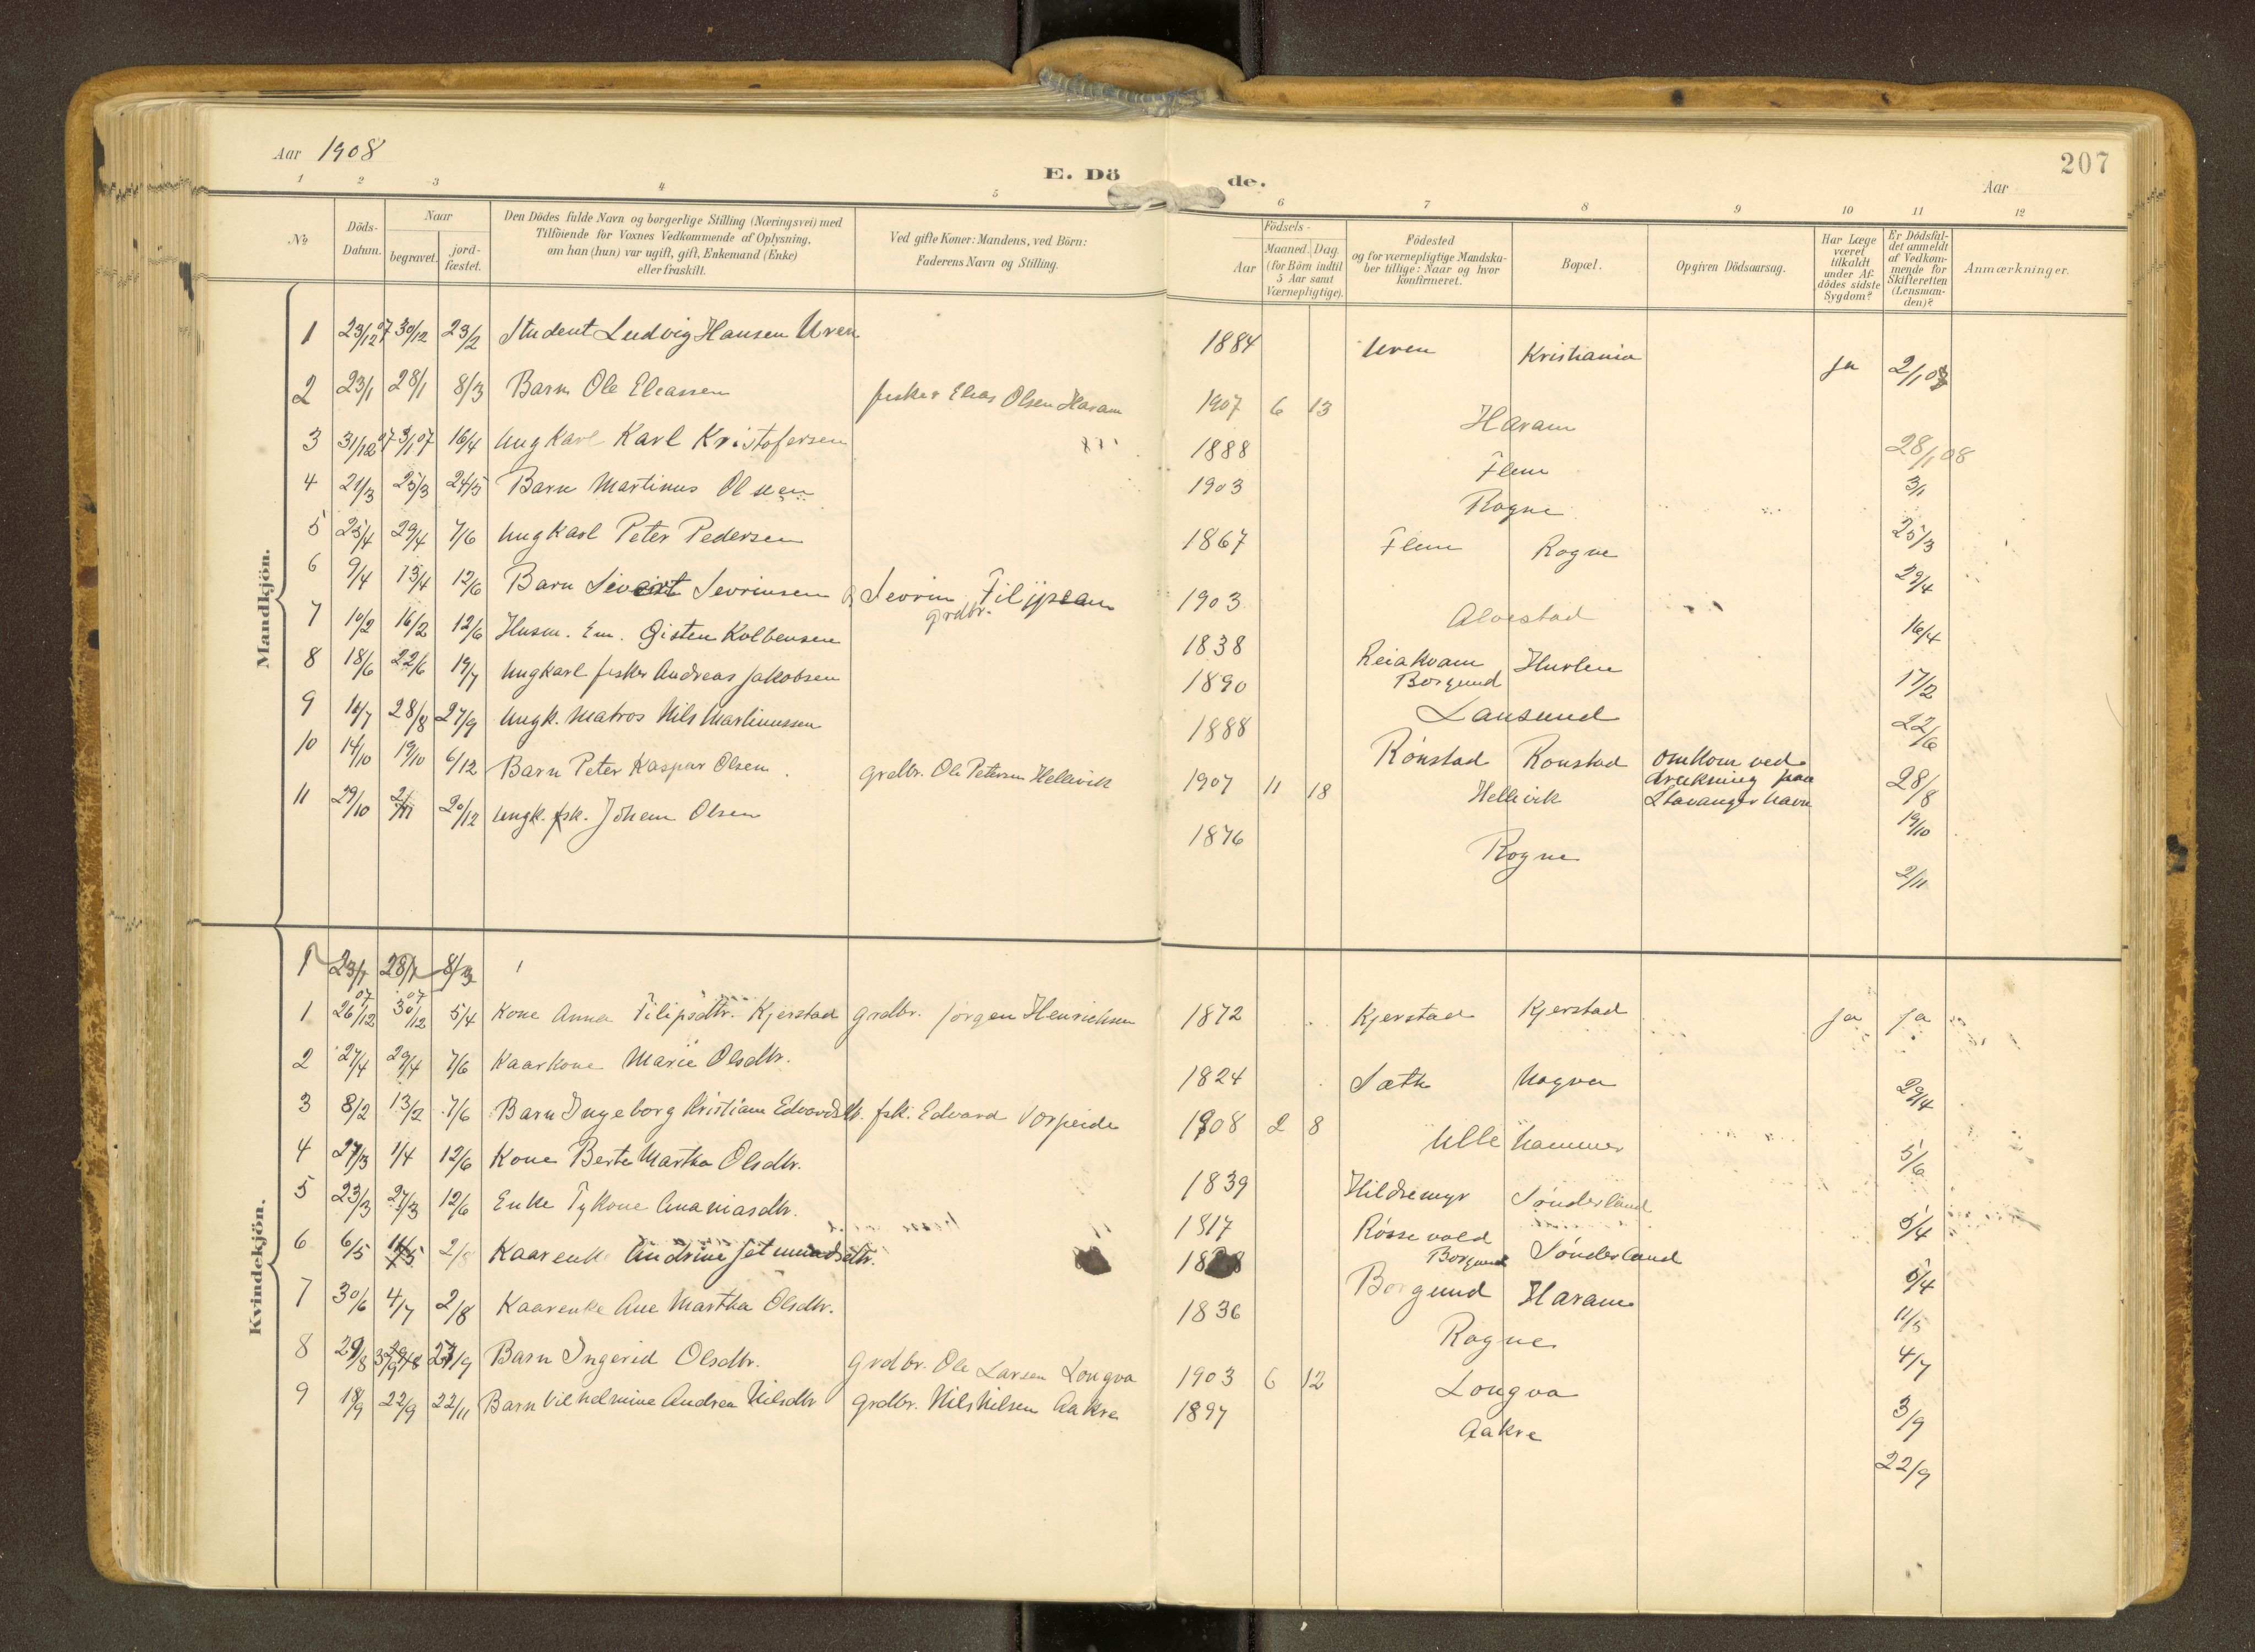 Aar 1908
E. Döde.
207
Aar
1 2 3 4 5 6 7 8 9 10 11 12
No
Döds-Datum.
Naar
begravet.
jord-fæstet.
Den Dödes fulde Navn og borgerlige Stilling (Næringsvei) med
Tilföiende for Voxnes Vedkommende af Oplysning,
om han (hun) var ugift, gift, Enkemand (Enke)
eller fraskilt.
Ved gifte Koner: Mandens, ved Börn:
Faderens Navn og Stilling.
Födsels-
Aar
Maaned. Dag.
(for Börn indtil
5 Aar samt
Værnepligtige).
Födested
og for værnepligtige Mandska-
ber tillige: Naar og hvor
konfirmeret.
Bopæl.
Opgiven Dödsaarsag.
Har Læge
været
tilkaldt
under Af-
dödes sidste
Sygdom?
Er Dödsfal-
det anmeldt
af Vedkom-
mende for
Skifteretten
(Lensman-
den)?
Anmærkninger.
Mandkjön.
1 23/12 07 30/12 23/2 Student Ludvig Hansen Uren 1884 Uren Kristiania Ja 2/1 08
2 23/1 28/1 8/3 Barn Ole Eliassen fisker Elias Olsen Haram 1907 6 13 Haram 28/1 08
3 31/12 07 3/1 07 16/4 Ungkarl Karl Kristofersen 1888 Flem 3/1
4 21/3 25/3 24/5 Barn Martinus Olsen 1903 Rogne 25/3
5 25/4 29/4 7/6 Ungkarl Peter Pedersen 1867 Flem Rogne 29/4
6 9/4 15/4 12/6 Barn Sivert Sevrinsen Sevrin Filipsen grdbr. 1903 Alvestad 16/4
7 10/2 16/2 12/6 Husm. Em. Gisten Kolbensen 1838 Reiakvam Borgund Hurlen 17/2
8 18/6 22/6 19/7 Ungkarl fisker Andreas Jakobsen 1890 Lausund 22/6
9 16/7 28/8 27/9 Ungk. Matros Nils Martinussen 1888 Rønstad Ronstad omkom ved drukning paa Stavanger havn 28/8
10 14/10 19/10 6/12 Barn Peter Kaspar Olsen grdbr. Ole Petersen Hellevik 1907 11 18 Hellevik 19/10
11 29/10 2/11 20/12 Ungk. fsk. Johan Olsen 1876 Rogne 2/11
Kvindekjön.
1 23/1 28/1 8/3
1 26/12 07 30/12 07 5/4 Kone Anna Filipsdtr. Kjerstad grdbr. Jørgen Henrichsen 1872 Kjerstad Kjerstad Ja ja
2 27/4 29/4 7/6 Kaarkone Marie Olsdtr. 1824 Sæth Uogva 29/4
3 8/2 13/2 7/6 Barn Ingeborg Kristiane Edvardsdtr. fsk. Edvard Vorpeide 1908 2 8 Ullehammer 5/6
4 27/3 1/4 12/6 Kone Berte Martha Olsdtr. 1839 Hildremyr Sønderland 5/4
5 23/3 27/3 12/6 Enke Tykone Ananiasdtr. 1817 Røssevold Borgund Sønderland 5/4
6 6/5 11/5 2/8 Kaarenke Andrine Jetmundsdtr. Borgund Haram 11/5
7 30/6 4/7 2/8 Kaarenke Ane Martha Olsdtr. 1836 Rogne 4/7
8 29/8 3/9 27/9 Barn Ingerid Olsdtr. grdbr. Ole Larsen Longva 1903 6 12 Longva 3/9
9 18/9 22/9 22/11 Barn Vilhelmine Andrea Nilsdtr grdbr. Nils Nilsen Aakre 1897 Aakre 22/9